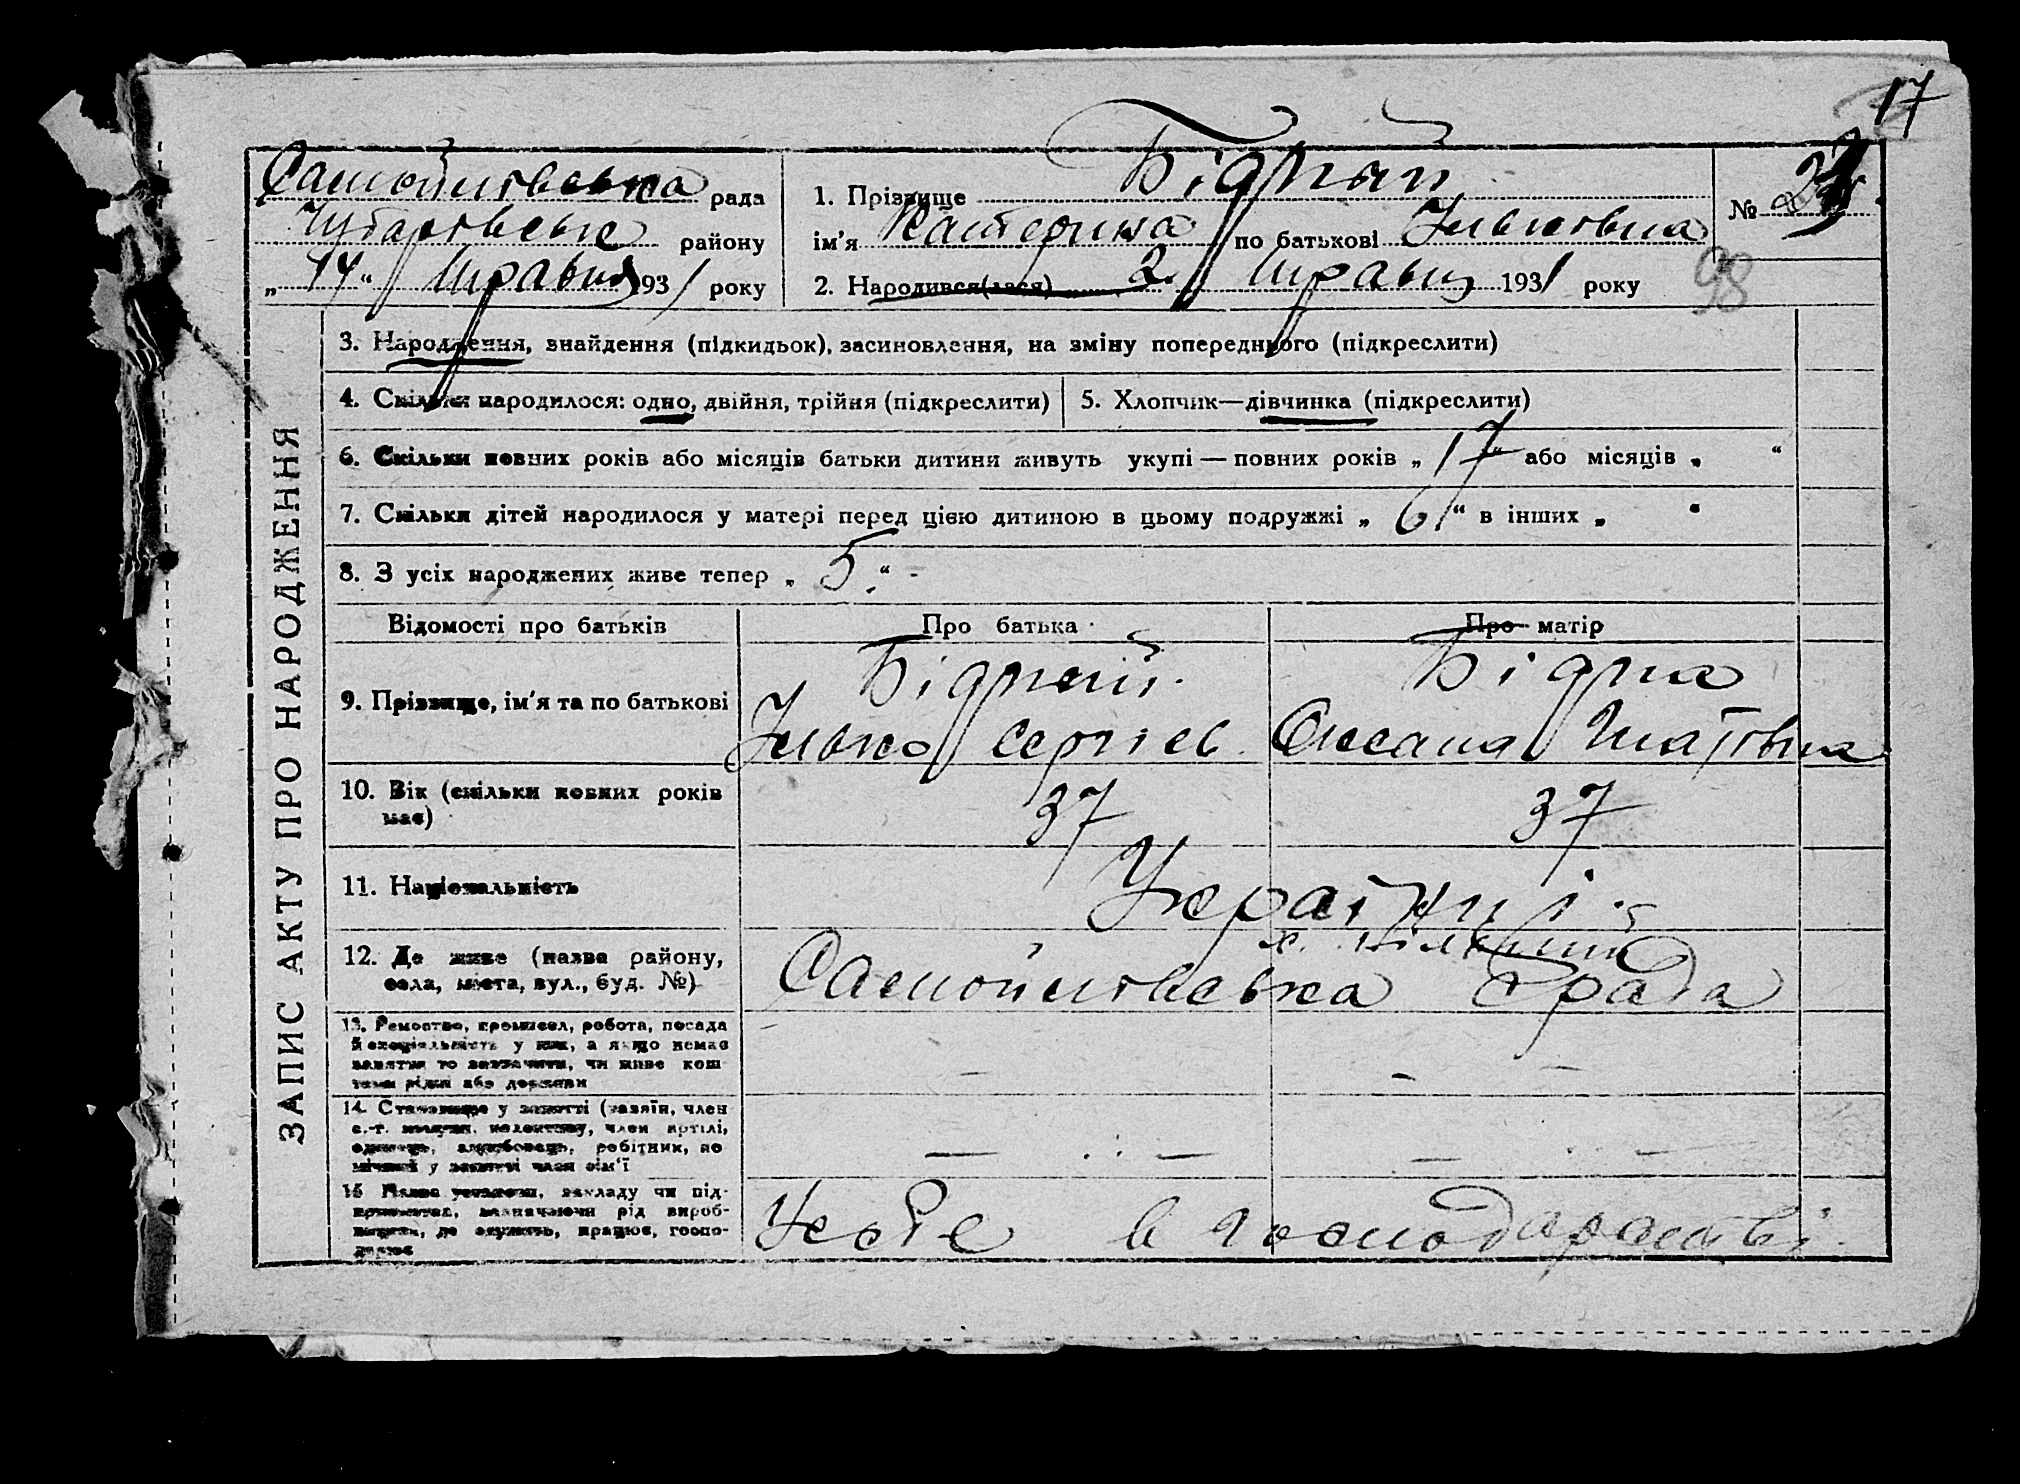 17
Самойлівська рада
Чубарівськ району
„14“ травня 1931 року
1. Прізвище Бідный
ім'я Катерина по батькові Ільківна
2. Народився(лася) 2 травня 1931 року
№
98
ЗАПИС АКТУ ПРО НАРОДЖЕННЯ
3. Народження, знайдення (підкидьок), засиновлення, на зміну попереднього (підкреслити)
4. Скільки народилося: одно, двійня, трійня (підкреслити)
5. Хлопчик—дівчинка (підкреслити)
6. Скільки повних років або місяців батьки дитини живуть укупі — повних років „17“ або місяців „ “
7. Скільки дітей народилося у матері перед цією дитиною в цьому подружжі „6“ в інших „ “
8. З усіх народжених живе тепер „5“
Відомості про батьків
Про батька
Про матір
9. Прізвище, ім'я та по батькові
Бідный
Ілько Сергієв
Бідна
Оксана
10. Вік (скільки повних років має)
37
37
11. Національність
Україн
12. Де живе (назва району,
села, міста, вул., буд. №)
х.
Самойлівська рада
13. Ремество, промисел, робота, посада
й спеціяльність у них, а якщо немає
заняття то зазначити, чи живе кош-
тами рідні або держави
14. Становище у занятті (хазяїн, член
с.-г. комуни, колективу, член артілі,
одинець, службовець, робітник, по-
мічний у занятті член сім'ї
15 Назва установи, закладу чи під-
приємства, зазначаючи рід вироб-
ництва, де служить, працює, госпо-
дарює
в господарстві